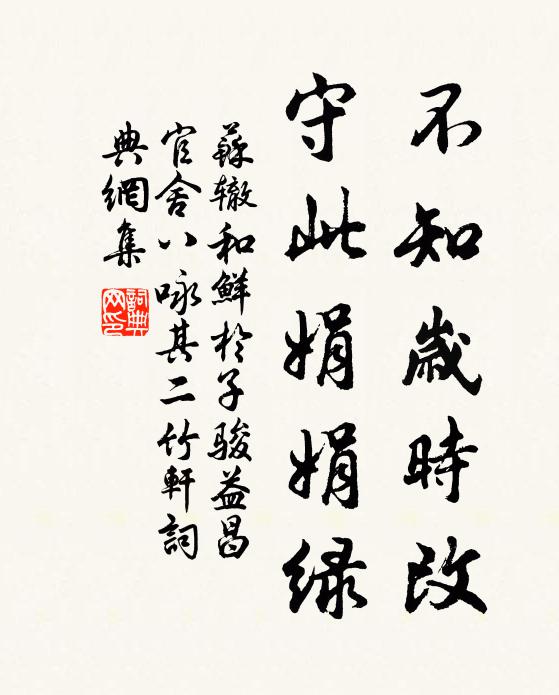 不知歲時改
守此娟娟綠
蘇轍和鮮於子駿益昌
官舍八咏其二竹軒詞
典網集
詞典
网印